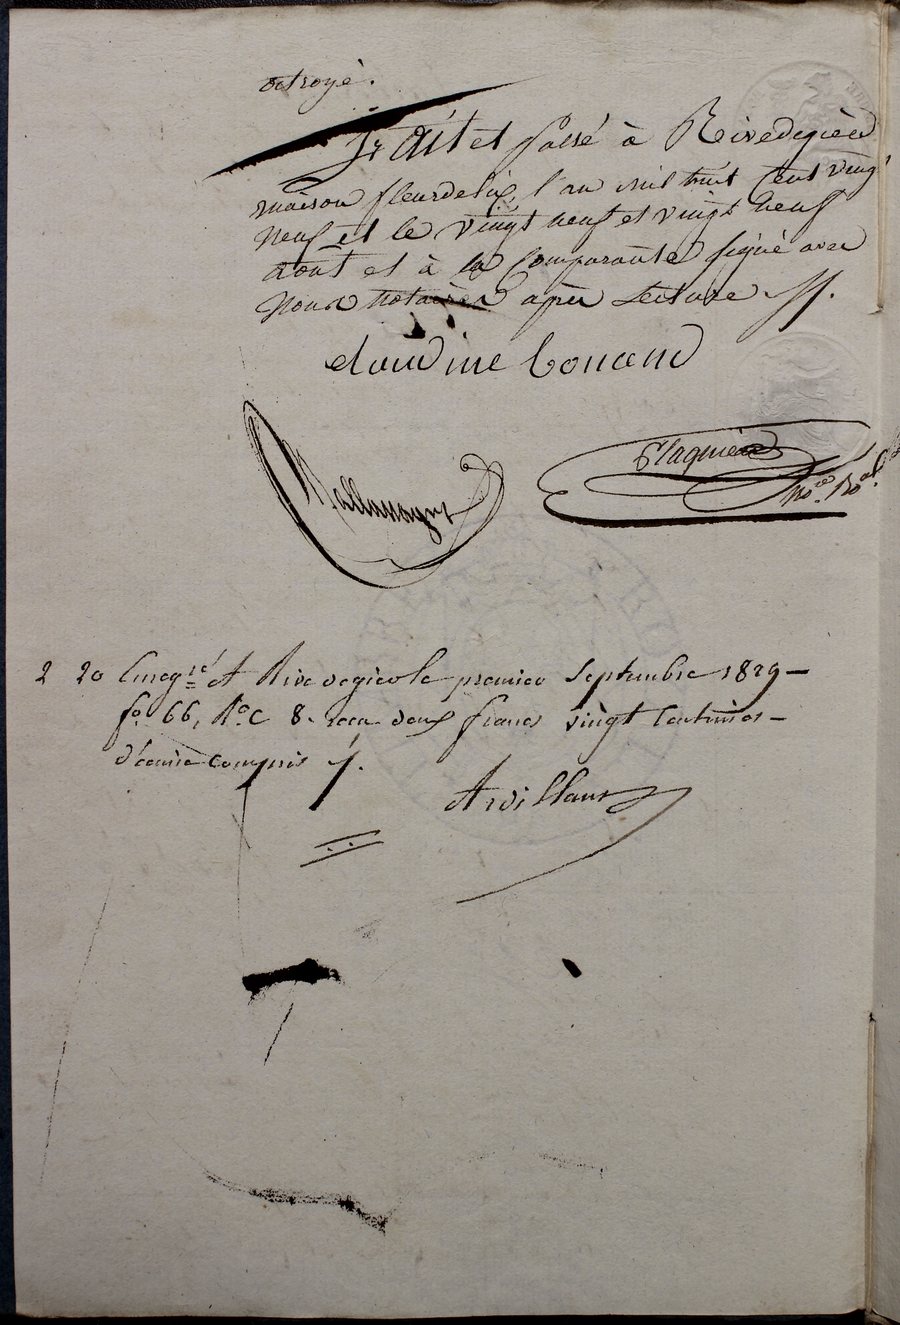 octroyé.
Fait et passé à Rivedegier
maison fleurdelix l'an mil huit cent vingt
neuf et le vingt neuf et vingt neuf
août et à la comparante signé avec
nous notaires après lecture
claudine bonand
2 20 Enregré A Rivedegier le premier Septembre 1829 –
fo. 66, Ro. C 8. recu deux francs vingt centimes –
d'ecime compris